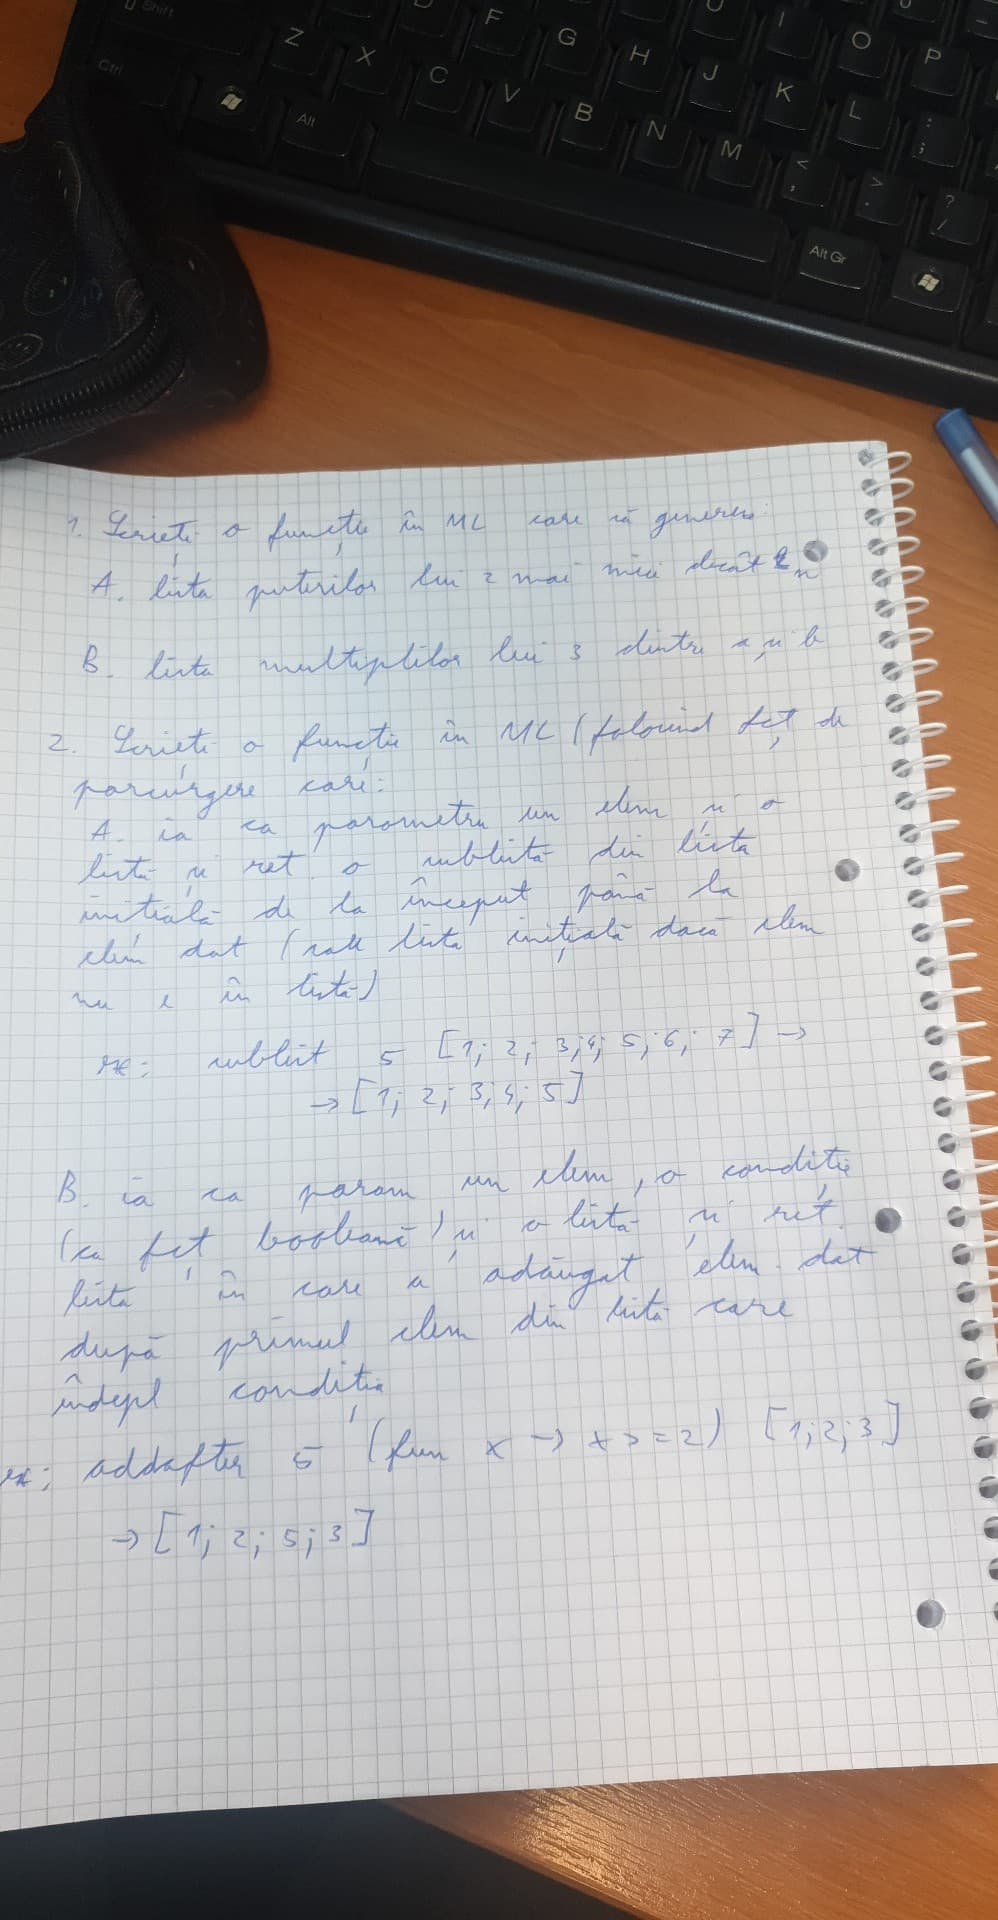 Shift
Ctrl
Z X C V B N M < , > . ? /
F G H J K L : ;
U I O P
Alt
Alt Gr
1. Scrieți o funcție în ML care să genereze:
A. lista puterilor lui 2 mai mici decât n
B. lista multiplilor lui 3 dintre a și b
2. Scrieți o funcție în ML (folosind fcț de
parcurgere care:
A. ia ca parametru un elem și o
listă și ret. o sublistă din lista
inițială de la început până la
elem dat (sau lista inițială dacă elem
nu e în listă)
ex: sublist 5 [1; 2; 3;4; 5; 6; 7] →
→ [1; 2; 3;4; 5]
B. ia ca param un elem, o condiție
(ca fcț booleană) și o listă și ret.
lista în care a adăugat elem. dat
după primul elem din listă care
îndepl condiția
ex: addafter 5 (fun x → x >= 2) [1;2;3]
→ [1; 2; 5; 3]